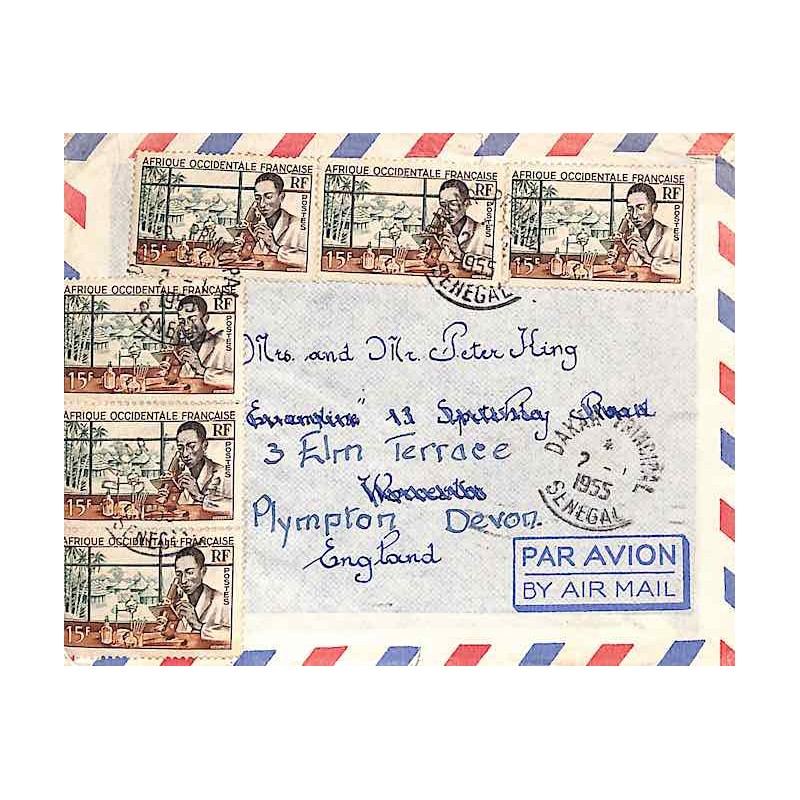 AFRIQUE OCCIDENTALE FRANÇAISE AFRIQUE OCCIDENTALE FRANÇAISE AFRIQUE OCCIDENTALE FRANÇAISE
RF RF RF
POSTES POSTES POSTES
15F 15F 15F
1955
SENEGAL
AFRIQUE OCCIDENTALE FRANÇAISE
RF
POSTES
15F
1955
SENEGAL
AFRIQUE OCCIDENTALE FRANÇAISE
RF
POSTES
15F
SENEGAL
AFRIQUE OCCIDENTALE FRANÇAISE
RF
POSTES
15F
Mrs. and Mr. Peter King
13 Road
3 Elm Terrace
Plympton Devon.
England
DAKAR PRINCIPAL
1955
SENEGAL
PAR AVION
BY AIR MAIL